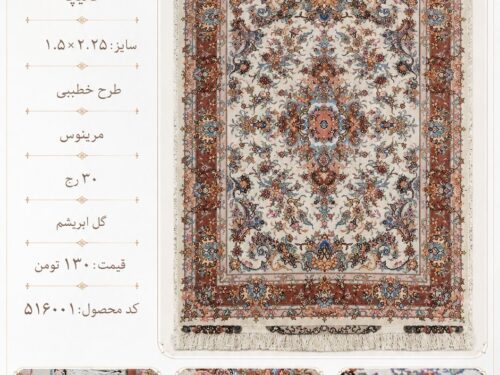 سایز: ۲.۲۵×۱.۵
طرح خطیبی
مرینوس
۳۰ رج
گل ابریشم
قیمت: ۱۳۰ تومن
کد محصول: ۵۱۶۰۰۱